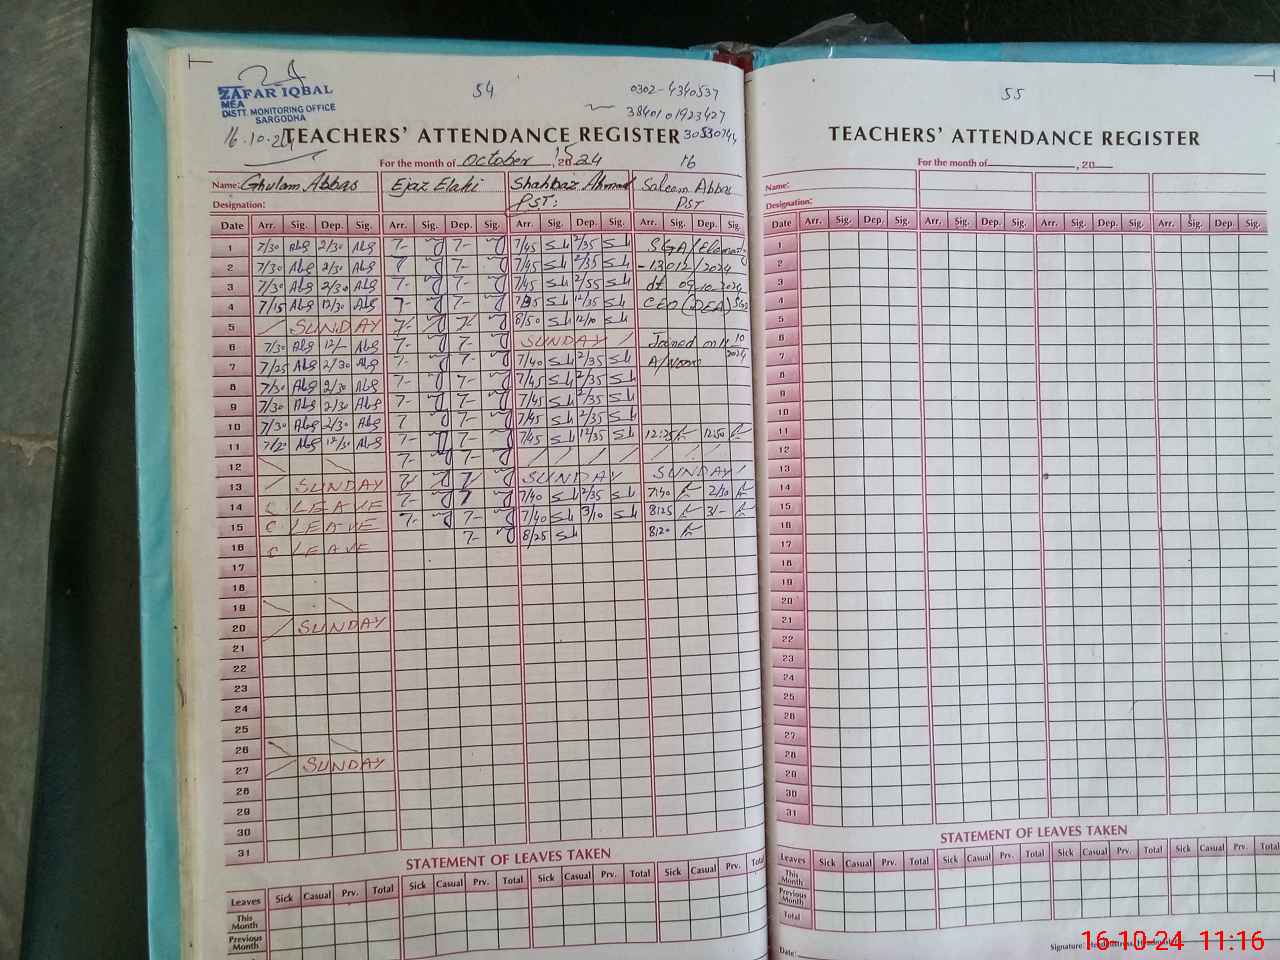 54
0302-4340537
ZAFAR IQBAL
MEA
DISTT. MONITORING OFFICE
SARGODHA
3840101923427
16.10.24
TEACHERS' ATTENDANCE REGISTER
For the month of October, 2024
16
Name: Ghulam Abbas Ejaz Elahi Shahbaz Ahmad Saleem Abbas
Designation: PST: PST
Date Arr. Sig. Dep. Sig. Arr. Sig. Dep. Sig. Arr. Sig. Dep. Sig. Arr. Sig. Dep. Sig.
1 7/30 2/30 7- 7- 7/45 2/35 SGA/
2 7/30 2/30 7- 7/45 2/35 13012/2024
3 7/30 2/30 7- 7- 7/45 2/55 dt 09-10-2024
4 7/15 12/30 7- 7- 12/35 CEO (DEA)
5 SUNDAY 7- 7- 8/50 12/10
6 7/30 12/- 7- 7- SUNDAY Joined on
7 7/25 2/30 7- 7- 7/40 2/35 A/Noon
8 7/30 2/30 7- 7- 7/45 2/35
9 7/30 2/30 7- 7- 7/45 2/35
10 7/30 2/30 7 7- 7/45 2/35
11 7/20 12/30 7- 7- 7/45 12/35 12:25 12:50
12 7- 7-
13 SUNDAY SUNDAY SUNDAY
14 C LEAVE 7- 7/40 2/35 7:40 2/30
15 C LEAVE 7- 7- 7/40 3/10 8:25 3/-
16 C LEAVE 7- 8/25 8:20
17
18
19
20 SUNDAY
21
22
23
24
25
26
27 SUNDAY
28
29
30
31
STATEMENT OF LEAVES TAKEN
Leaves Sick Casual Prv. Total Sick Casual Prv. Total Sick Casual Prv. Total Sick Casual Prv. Total
This Month
Previous Month
55
TEACHERS' ATTENDANCE REGISTER
For the month of , 20
Name:
Designation:
Date Arr. Sig. Dep. Sig. Arr. Sig. Dep. Sig. Arr. Sig. Dep. Sig. Arr. Sig. Dep. Sig.
1
2
3
4
5
6
7
8
9
10
11
12
13
14
15
16
17
18
19
20
21
22
23
24
25
26
27
28
29
30
31
STATEMENT OF LEAVES TAKEN
Leaves Sick Casual Prv. Total Sick Casual Prv. Total Sick Casual Prv. Total Sick Casual Prv. Total
This Month
Previous Month
Total
Date:
Signature:
16-10-24 11:16